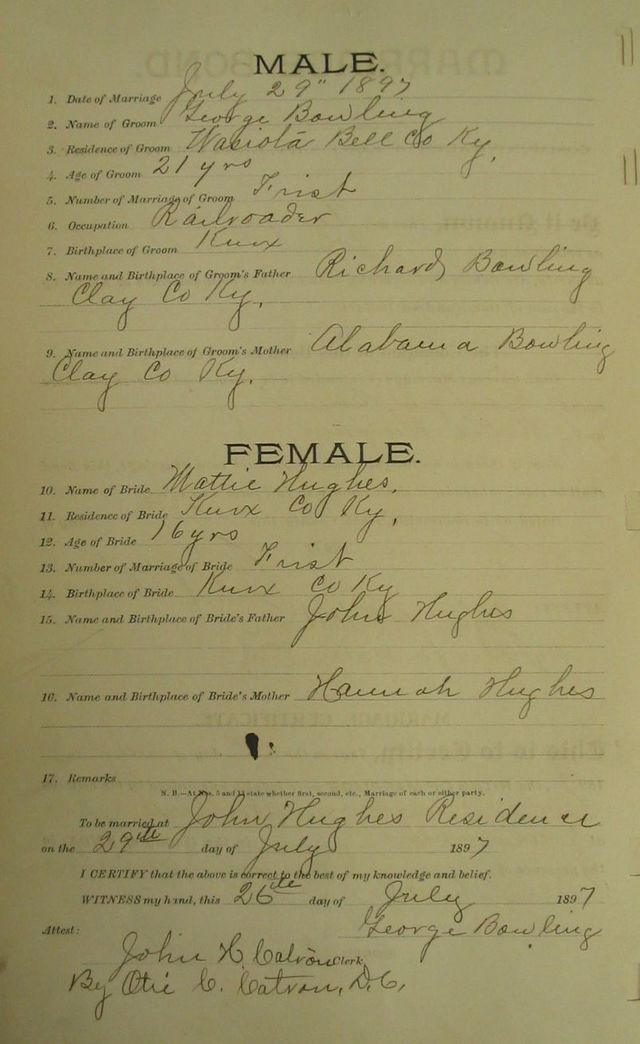 MALE.
1. Date of Marriage July 29" 1897
2. Name of Groom George Bowling
3. Residence of Groom Wasiota Bell Co Ky,
4. Age of Groom 21 yrs
5. Number of Marriage of Groom Frist
6. Occupation Railroader
7. Birthplace of Groom Knox
8. Name and Birthplace of Groom's Father Richard Bowling
Clay Co Ky.
9. Name and Birthplace of Groom's Mother Alabama Bowling
Clay Co Ky.
FEMALE.
10. Name of Bride Mattie Hughes.
11. Residence of Bride Knox Co Ky,
12. Age of Bride 16 yrs
13. Number of Marriage of Bride Frist
14. Birthplace of Bride Knox Co Ky
15. Name and Birthplace of Bride's Father John Hughes
16. Name and Birthplace of Bride's Mother Hannah Hughes
17. Remarks
N. B.—At Nos. 5 and 13 state whether first, second, etc., Marriage of each or either party.
To be married at John Hughes Residence
on the 29th day of July 1897
I CERTIFY that the above is correct to the best of my knowledge and belief.
WITNESS my hand, this 26th day of July 1897
George Bowling
Attest:
John H Catron Clerk
By Otie C. Catron, D.C.